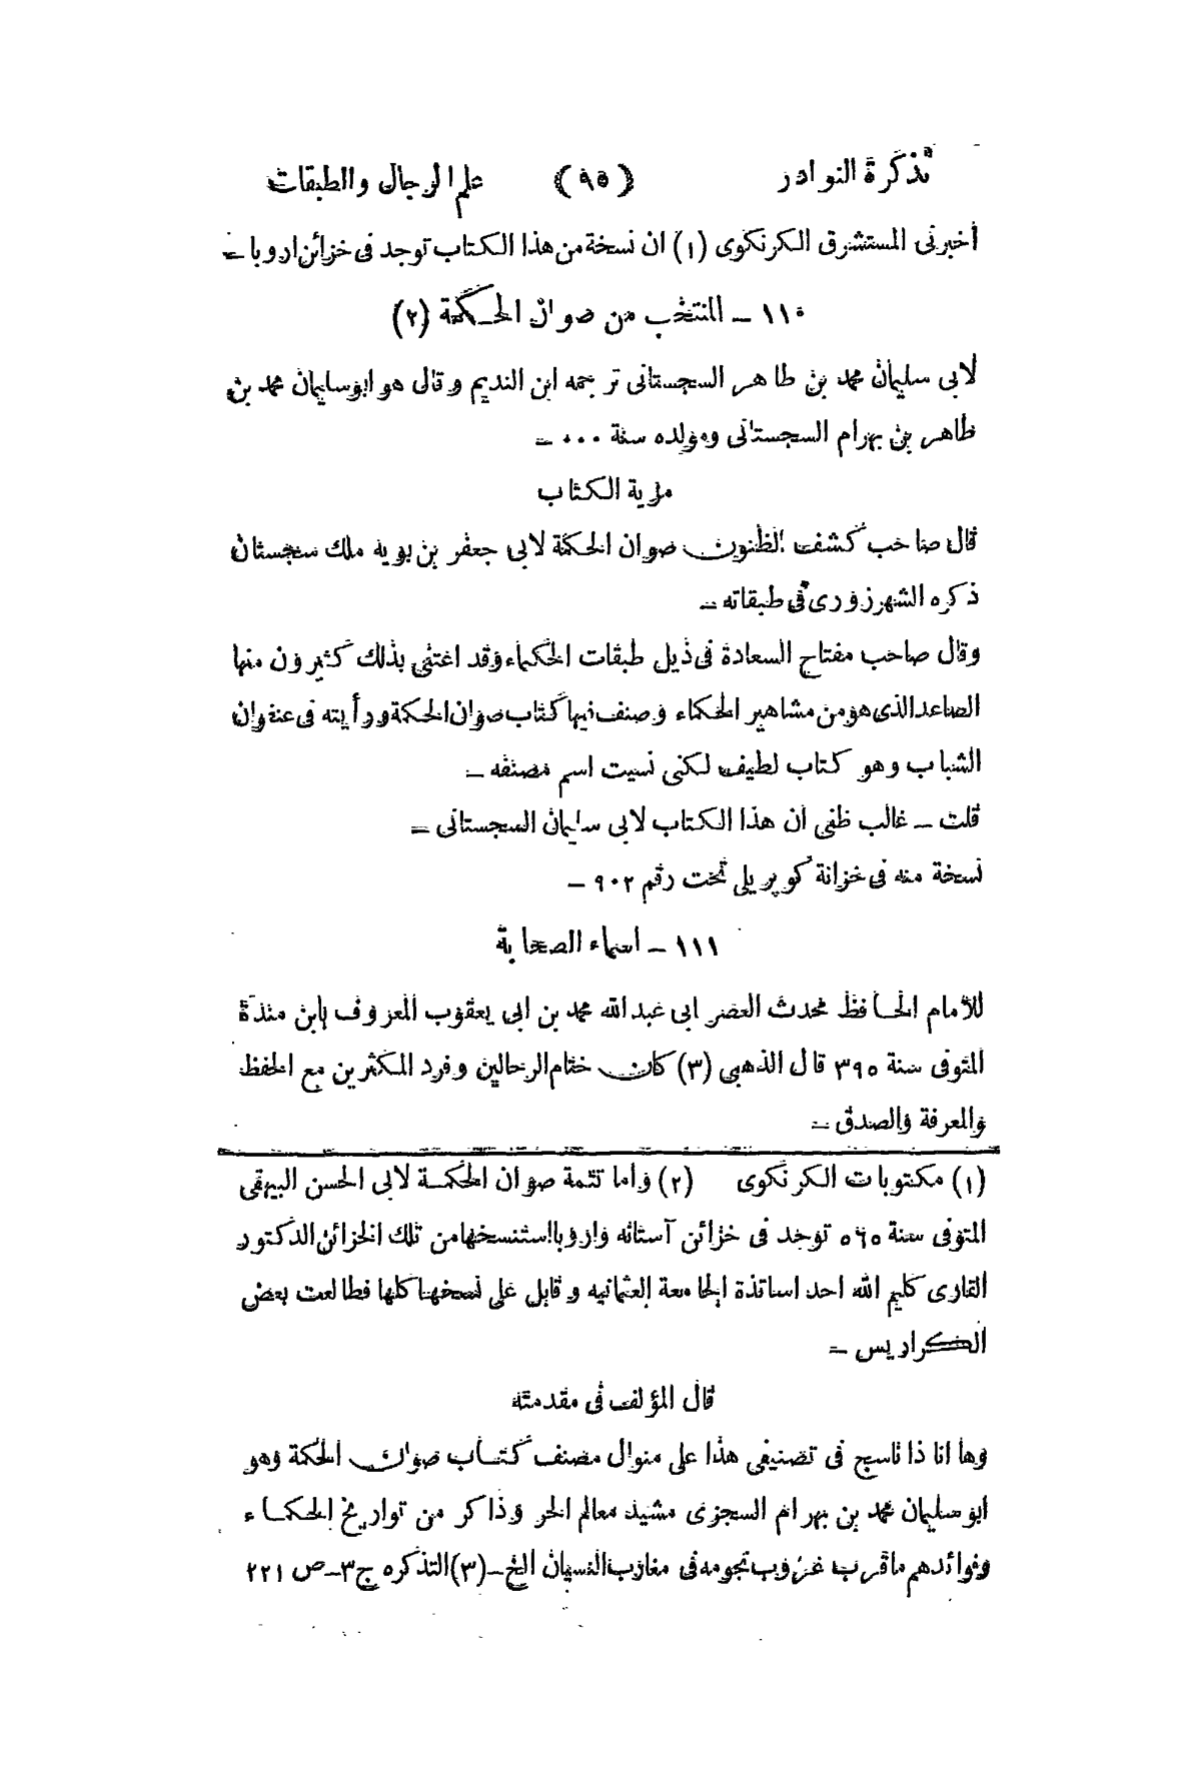 تذكرة النوادر (٩٥) علم الرجال والطبقات
أخبرنى المستشرق الكرنكوى (١) ان نسخة من هذا الكتاب توجد فى خزائن اروبا ــ
١١٠ ــ المنتخب من صوان الحكمة (٢)
لابى سليمان محمد بن طاهر السجستانى ترجمه ابن النديم وقال هو ابو سليمان محمد بن
طاهر بن بهرام السجستانى ومولده سنة ٠٠٠ ــ
مزية الكتاب
قال صاحب كشف الظنون صوان الحكمة لابى جعفر بن بويه ملك سجستان
ذكره الشهرزورى فى طبقاته ــ
وقال صاحب مفتاح السعادة فى ذيل طبقات الحكماء وقد اعتنى بذلك كثيرون منها
الصاعد الذى هو من مشاهير الحكماء وصنف فيها كتاب صوان الحكمة ورأيته فى عنفوان
الشباب وهو كتاب لطيف لكنى نسيت اسم مصنفه ــ
قلت ــ غالب ظنى ان هذا الكتاب لابى سليمان السجستانى ــ
نسخة منه فى خزانة كوپريلى تحت رقم ٩٠٢ ــ
١١١ ــ اسماء الصحابة
للامام الحافظ محدث العصر ابى عبد الله محمد بن ابى يعقوب المعروف بابن مندة
المتوفى سنة ٣٩٥ قال الذهبى (٣) كان ختام الرحالين وفرد المكثرين مع الحفظ
والمعرفة والصدق ــ
(١) مكتوبات الكرنكوى (٢) واما تتمة صوان الحكمة لابى الحسن البيهقى
المتوفى سنة ٥٦٥ توجد فى خزائن آستانه واروبا استنسخها من تلك الخزائن الدكتور
القارى كليم الله احد اساتذة الجامعة العثمانيه وقابل على نسخها كلها فطالعت بعض
الكراريس ــ
قال المؤلف فى مقدمته
وها انا ذا ناسج فى تصنيفى هذا على منوال مصنف كتاب صوان الحكمة وهو
ابو سليمان محمد بن بهرام السجزى مشيد معالم الحر وذاكر من تواريخ الحكماء
وفوائدهم ما قرب غروب نجومه فى مغارب النسيان الخ ــ (٣) التذكره ج ٣ ــ ص ٢٢١